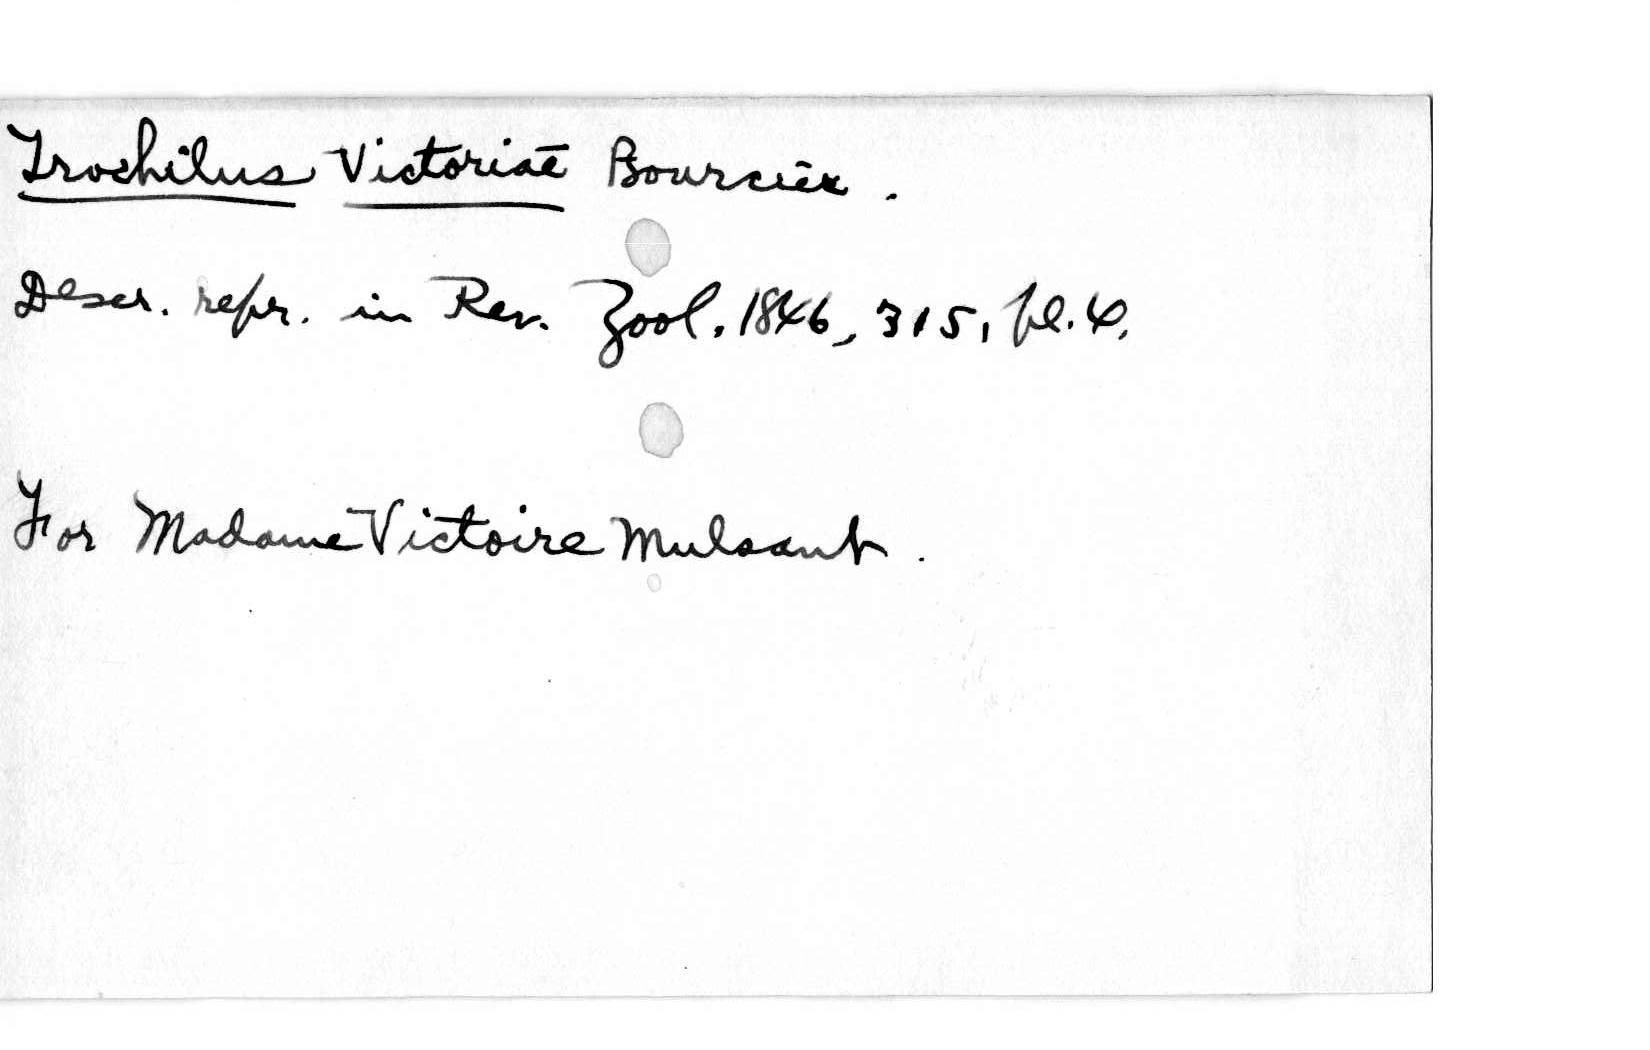 Trochilus Victoriae Bourcier.
Descr. repr. in Rev. Zool. 1846, 315, pl. 4.
For Madame Victoire Mulsant.